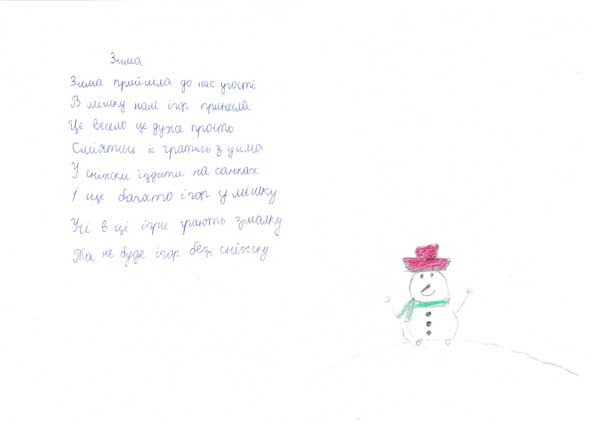 Зима
Зима прийшла до нас угості
В мішку нам ігор принесла
Це весело це дуже просто
Сміятись й гратись з усіма
У сніжки їздити на санках
І ще багато ігор у мішку
Усі в ці ігри грають змалку
Та не буде ігор без сніжку